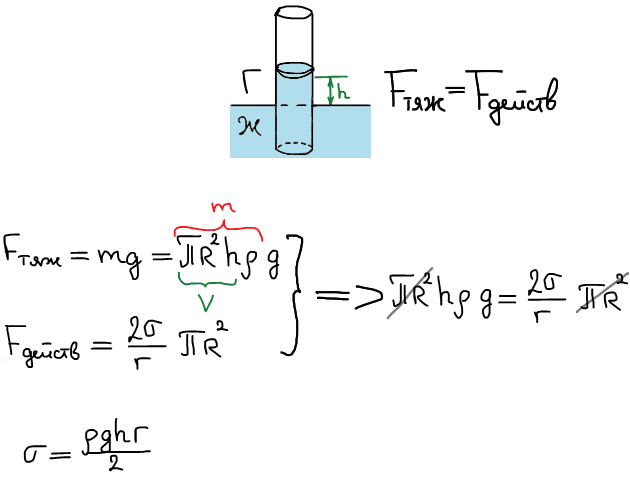 Г
h
ж
Fтяж = Fдейств
m
Fтяж = mg = πR²hρ g
V
Fдейств = 2σ/r πR²
=> πR²hρ g = 2σ/r πR²
σ = ρghr/2